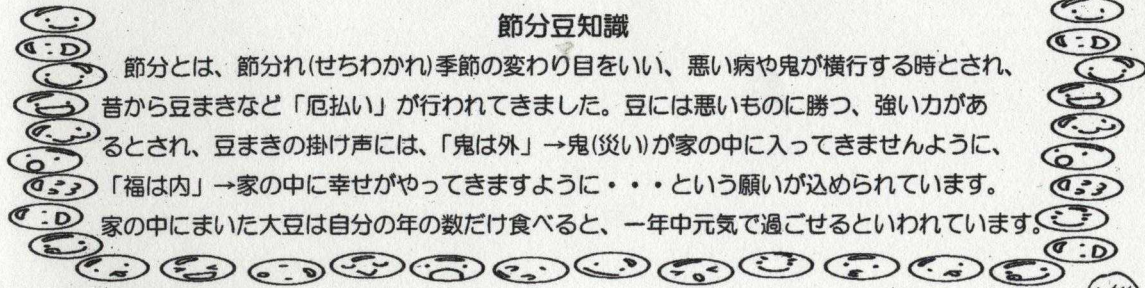 節分豆知識
節分とは、節分れ(せちわかれ)季節の変わり目をいい、悪い病や鬼が横行する時とされ、
昔から豆まきなど「厄払い」が行われてきました。豆には悪いものに勝つ、強い力があ
るとされ、豆まきの掛け声には、「鬼は外」→鬼(災い)が家の中に入ってきませんように、
「福は内」→家の中に幸せがやってきますように・・・という願いが込められています。
家の中にまいた大豆は自分の年の数だけ食べると、一年中元気で過ごせるといわれています。